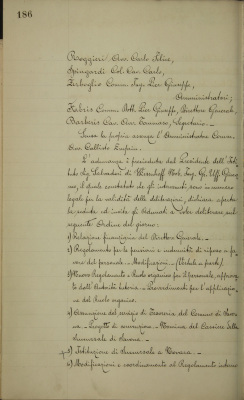 186
Ruggieri Cav. Carlo Felice,
Spingardi Col. Cav. Carlo,
Zerboglio Comm. Ing. Pier Giuseppe,
Amministratori;
Fabris Comm. Dott. Pier Giuseppe, Direttore Generale,
Barberis Cav. Avv. Tommaso, Segretario.
Scusa la propria assenza l'Amministratore Comm.
L'adunanza è presieduta dal Presidente dell'Isti
tuto Sig. Salvadori di Wiesenhoff Nob. Ing. Gr. Uff. Giaco
mo, il quale constatato che gli intervenuti sono in numero
legale per la validità delle deliberazioni, dichiara aperta
la seduta ed invita gli Adunati a voler deliberare sul
seguente Ordine del giorno:
1) Relazione finanziaria del Direttore Generale.
2) Regolamento per le pensioni e indennità di riposo a fa
vore del personale. Modificazioni (Schede a parte).
3) Nuovo Regolamento e Ruolo organico per il personale, approva
to dall'Autorità tutoria. Provvedimenti per l'applicazio
ne del Ruolo organico.
4) Assunzione del servizio di Tesoreria del Comune di
Progetto di convenzione. Nomina del Cassiere della
Succursale di
5) Istituzione di Succursale a
6) Modificazioni e coordinamento al Regolamento interno